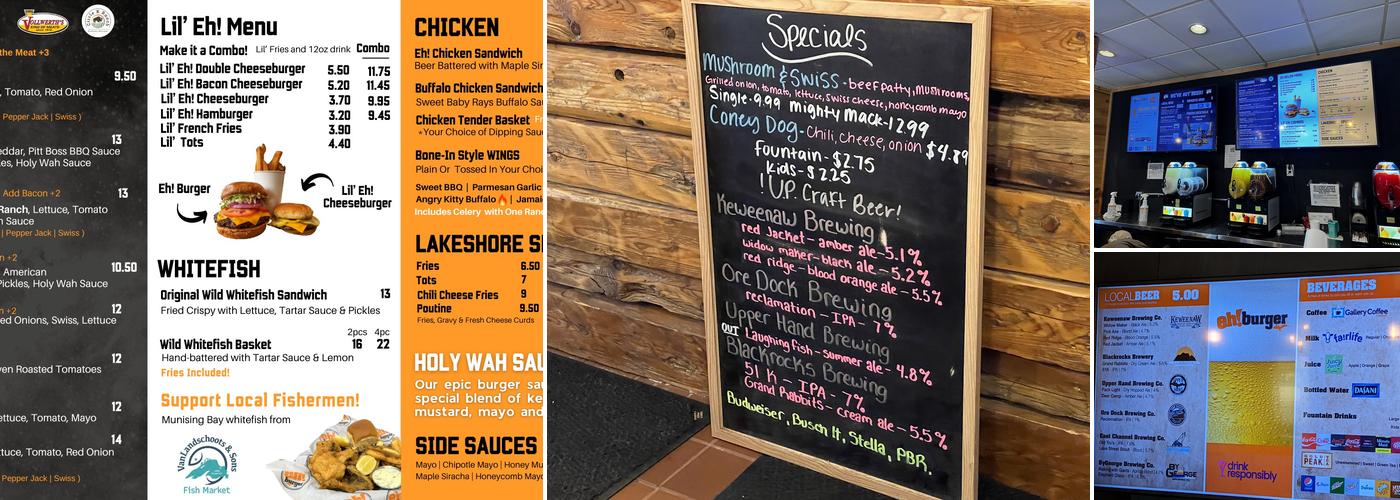 VOLLWERTH'S
the Meat +3
9.50
, Tomato, Red Onion
Pepper Jack | Swiss )
13
eddar, Pitt Boss BBQ Sauce
les, Holy Wah Sauce
Add Bacon +2
13
Ranch, Lettuce, Tomato
h Sauce
| Pepper Jack | Swiss )
n +2
American
10.50
Pickles, Holy Wah Sauce
n +2
12
ed Onions, Swiss, Lettuce
12
ven Roasted Tomatoes
12
ettuce, Tomato, Mayo
14
ttuce, Tomato, Red Onion
Pepper Jack | Swiss )
Lil' Eh! Menu
Make it a Combo! Lil' Fries and 12oz drink Combo
Lil' Eh! Double Cheeseburger 5.50 11.75
Lil' Eh! Bacon Cheeseburger 5.20 11.45
Lil' Eh! Cheeseburger 3.70 9.95
Lil' Eh! Hamburger 3.20 9.45
Lil' French Fries 3.90
Lil' Tots 4.40
Eh! Burger
Lil' Eh!
Cheeseburger
WHITEFISH
Original Wild Whitefish Sandwich 13
Fried Crispy with Lettuce, Tartar Sauce & Pickles
2pcs 4pc
Wild Whitefish Basket 16 22
Hand-battered with Tartar Sauce & Lemon
Fries Included!
Support Local Fishermen!
Munising Bay whitefish from
VanLandschoots & Sons
Fish Market
CHICKEN
Eh! Chicken Sandwich
Beer Battered with Maple Sir
Buffalo Chicken Sandwich
Sweet Baby Rays Buffalo Sau
Chicken Tender Basket Fr
*Your Choice of Dipping Sauc
Bone-In Style WINGS
Plain Or Tossed In Your Choi
Sweet BBQ | Parmesan Garlic
Angry Kitty Buffalo | Jamai
Includes Celery with One Ranc
LAKESHORE S
Fries 6.50
Tots 7
Chili Cheese Fries 9
Poutine 9.50
Fries, Gravy & Fresh Cheese Curds
HOLY WAH SAU
Our epic burger sau
special blend of ke
mustard, mayo and
SIDE SAUCES
Mayo | Chipotle Mayo | Honey Mu
Maple Siracha | Honeycomb Mayo
Specials
Mushroom & Swiss - beef patty, mushrooms,
Grilled onion, tomato, lettuce, swiss cheese, honeycomb mayo
Single-9.99 mighty mack-12.99
Coney Dog - Chili, cheese, onion $4.89
fountain - $2.75
kids - $2.25
! U.P. Craft Beer!
Keweenaw Brewing
red Jacket - amber ale - 5.1%
widow maker - black ale - 5.2%
red ridge - blood orange ale - 5.5%
Ore Dock Brewing
reclamation - IPA - 7%
Upper Hand Brewing
OUT Laughing fish - summer ale - 4.8%
Blackrocks Brewing
51 K - IPA - 7%
Grand Rabbits - cream ale - 5.5%
Budweiser, Busch lt, Stella, PBR,
LOCALBEER 5.00
Keweenaw Brewing Co.
KEWEENAW
Blackrocks Brewery
Upper Hand Brewing Co.
Ore Dock Brewing Co.
East Channel Brewing Co.
ByGeorge Brewing Co.
BY GEORGE
eh!burger
drink
responsibly
BEVERAGES
Coffee Gallery Coffee
Milk fairlife
Juice
Bottled Water DASANI
Fountain Drinks
GOLD PEAK